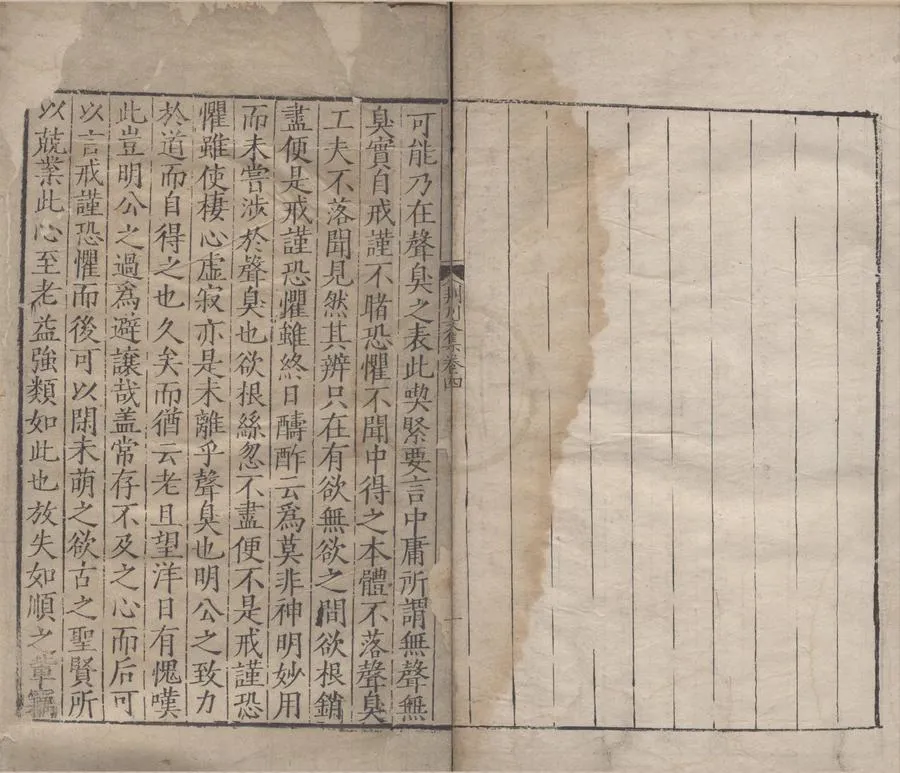 荊川文集卷四
一
可能乃在聲臭之表此喫緊要言中庸所謂無聲無
臭實自戒謹不睹恐懼不聞中得之本體不落聲臭
工夫不落聞見然其辨只在有欲無欲之間欲根銷
盡便是戒謹恐懼雖終日醻酢云爲莫非神明妙用
而未嘗涉於聲臭也欲根絲忽不盡便不是戒謹恐
懼雖使棲心虛寂亦是未離乎聲臭也明公之致力
於道而自得之也久矣而猶云老且望洋日有愧嘆
此豈明公之過爲避讓哉盖常存不及之心而后可
以言戒謹恐懼而後可以閑未萌之欲古之聖賢所
以兢業此心至老益強類如此也放失如順之章